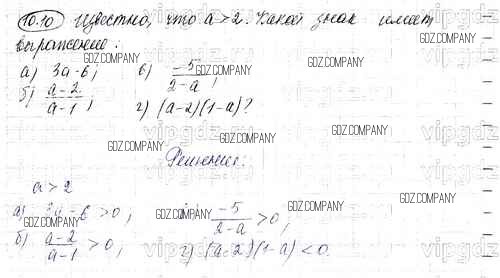 10.10 Известно, что a>2. Какой знак имеет
выражение:
а) 3a-6; в) -5/(2-a);
б) (a-2)/(a-1); г) (a-2)(1-a)?
Решение:
a>2
а) 3a-6>0, -5/(2-a)>0,
б) (a-2)/(a-1)>0, г) (a-2)(1-a)<0.
GDZ.COMPANY
GDZ.COMPANY
GDZ.COMPANY
GDZ.COMPANY
GDZ.COMPANY
GDZ.COMPANY
GDZ.COMPANY
GDZ.COMPANY
GDZ.COMPANY
GDZ.COMPANY
GDZ.COMPANY